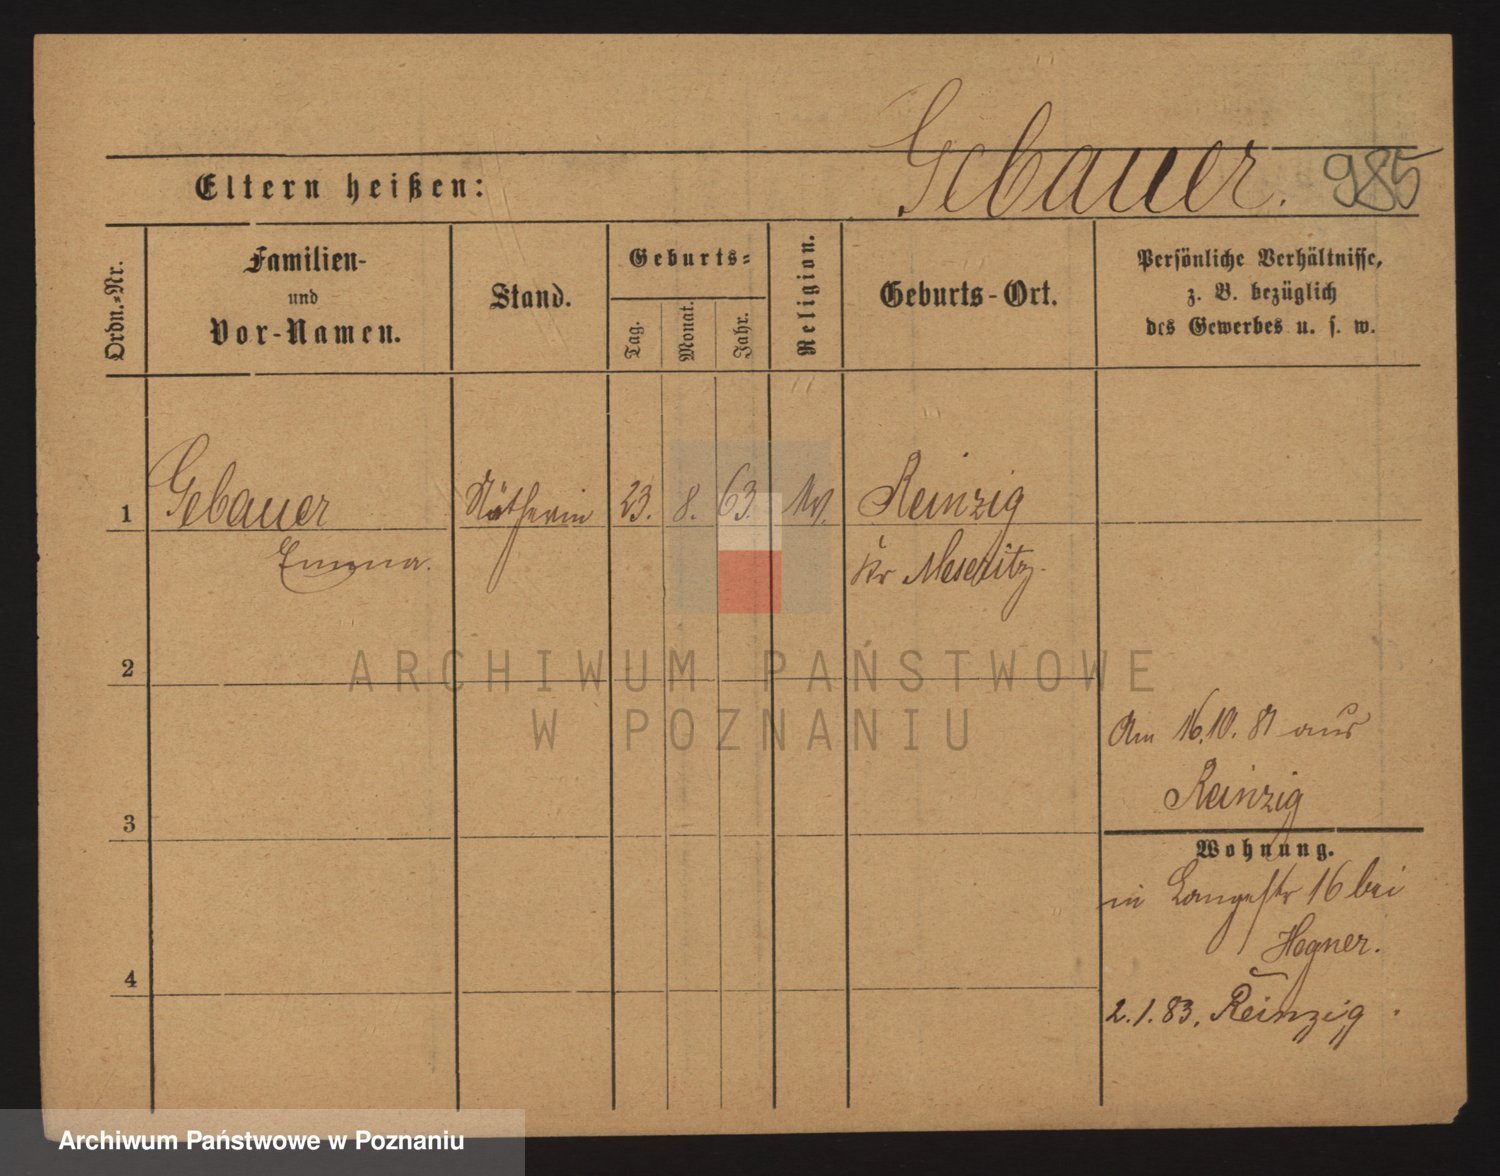 Gebauer. 985
Eltern heißen:
Ordn.=Nr.
Familien-
und
Vor-Namen.
Stand.
Geburts=
Tag.
Monat.
Jahr.
Religion.
Geburts-Ort.
Persönliche Verhältnisse,
z. B. bezüglich
des Gewerbes u. s. w.
1 Gebauer Nätherin 23. 8. 63. Reinzig
Emma. Kr Meseritz.
2
ARCHIWUM PAŃSTWOWE
W POZNANIU
Am 16.10. 81 aus
Reinzig
3
Wohnung.
in Langestr 16 bei
Hegner.
4
2.1.83. Reinzig.
Archiwum Państwowe w Poznaniu